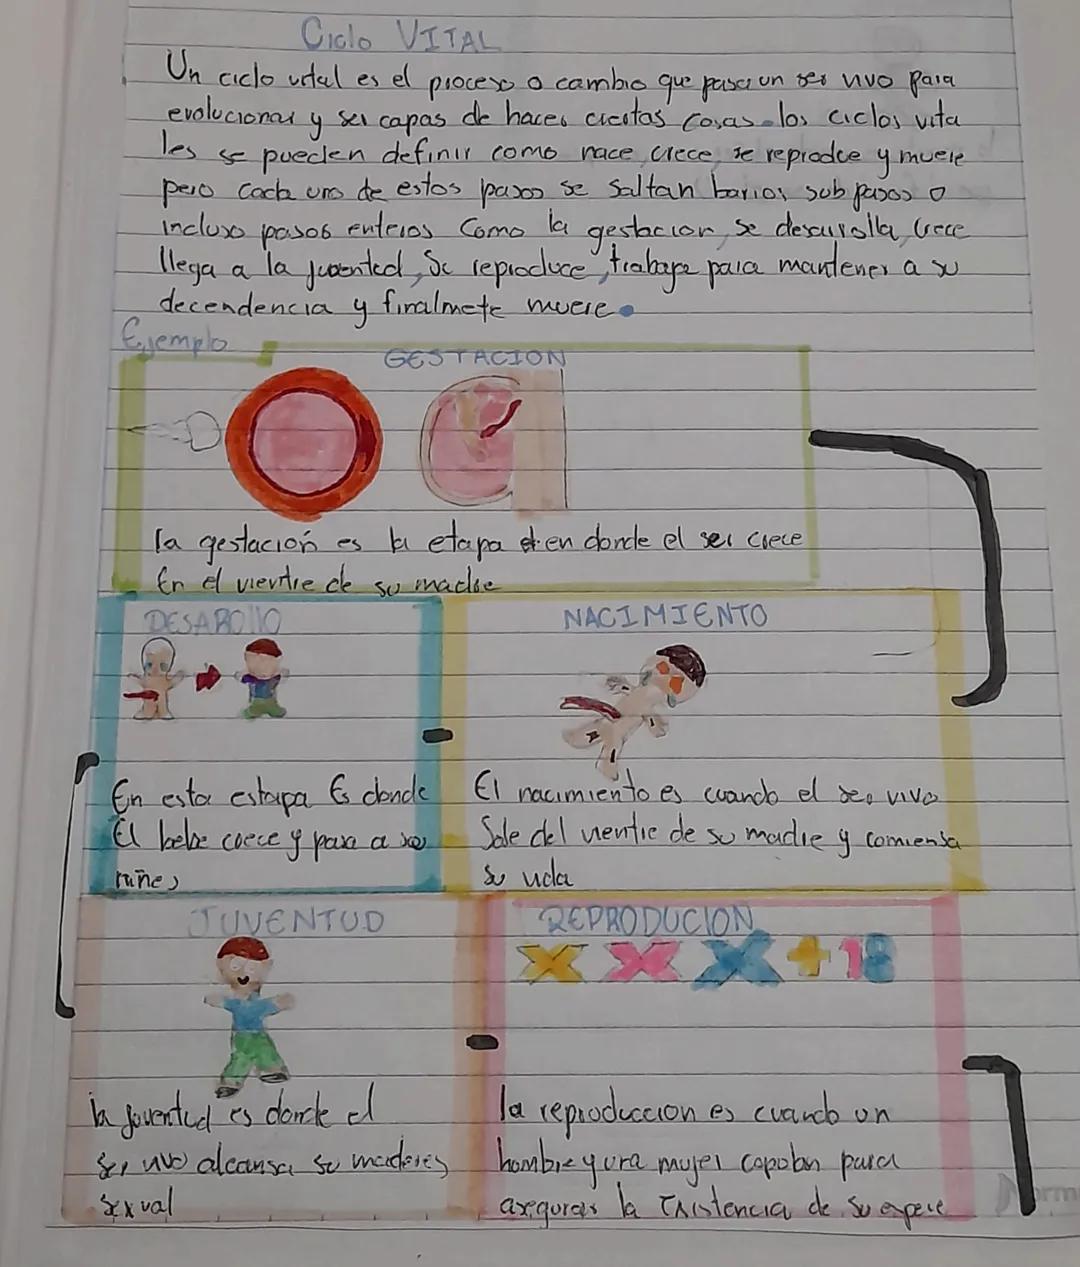 Ciclo VITAL
Un ciclo vital es el proceso o cambio que pasa un ser vivo para
evolucionar y ser capas de hacer ciertas cosas los ciclos vita
les se pueden definir como nace, crece, se reprodce y muere
pero cada uno de estos pasos se saltan barios sub pasos o
incluso pasos enteros Como la gestacion, se desarrolla, Crece
llega a la juventud, Se reproduce, trabaja para mantener a su
decendencia y finalmete muere.
Ejemplo
GESTACION
la gestación es la etapa en donde el ser crece
En el vientre de su madre
DESAROllO
NACIMIENTO
En esta estapa Es donde
El bebe crece y pasa a ser
niñes
El nacimiento es cuando el ser vivo
Sale del vientre de su madre y comiensa
su vida
JUVENTUD
REPRODUCION
X X X + 18
la juventud es donde el
ser vivo alcansa su madures
sexual
la reproduccion es cuando un
hombre y una mujer copoban para
asegurar la Existencia de su espece
Norm